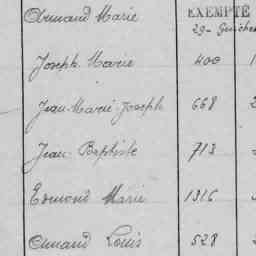 Armand Marie EXEMPTÉ
29-Guiches
Joseph Marie 400 1
Jean-Marie-Joseph 668 2
Jean Baptiste 713
Edmond Marie 1316
Armand Louis 528 2